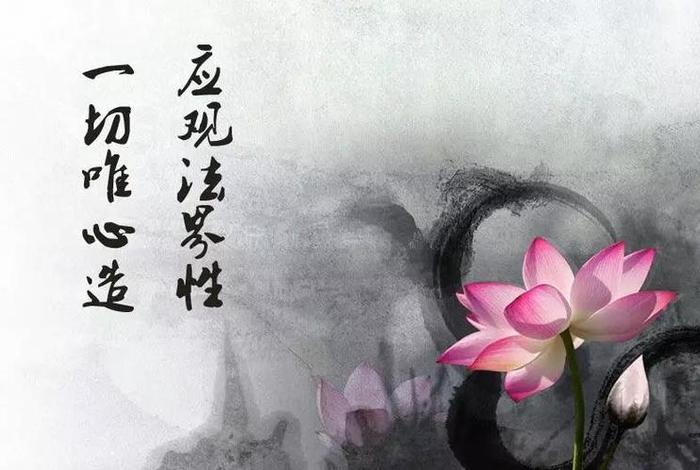 应观法界性
一切唯心造